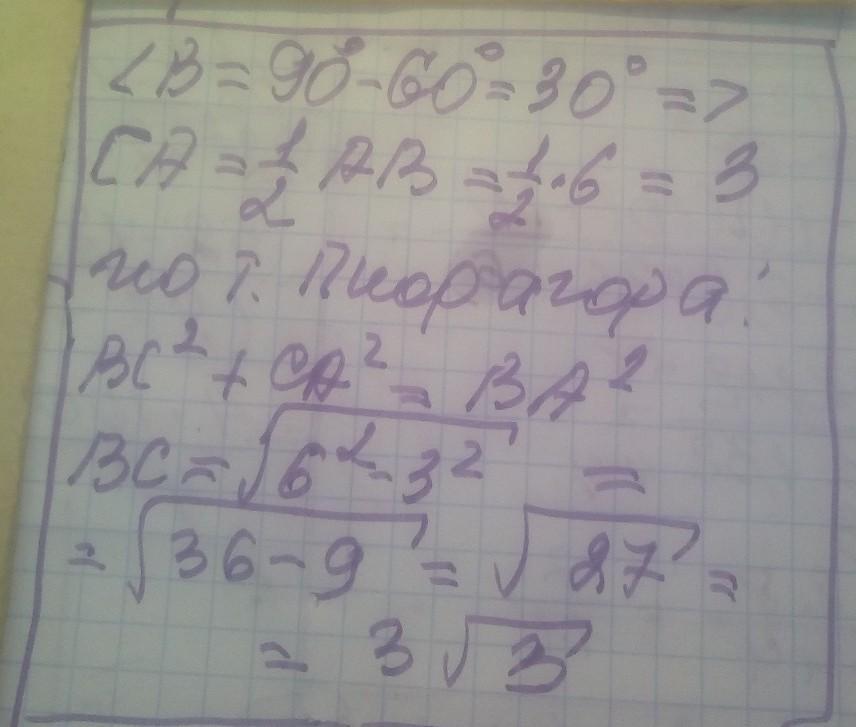 ∠B = 90° - 60° = 30° =>
CA = 1/2 AB = 1/2 · 6 = 3
по т. Пифагора:
BC² + CA² = BA²
BC = √(6² - 3²) =
= √(36 - 9) = √27 =
= 3√3